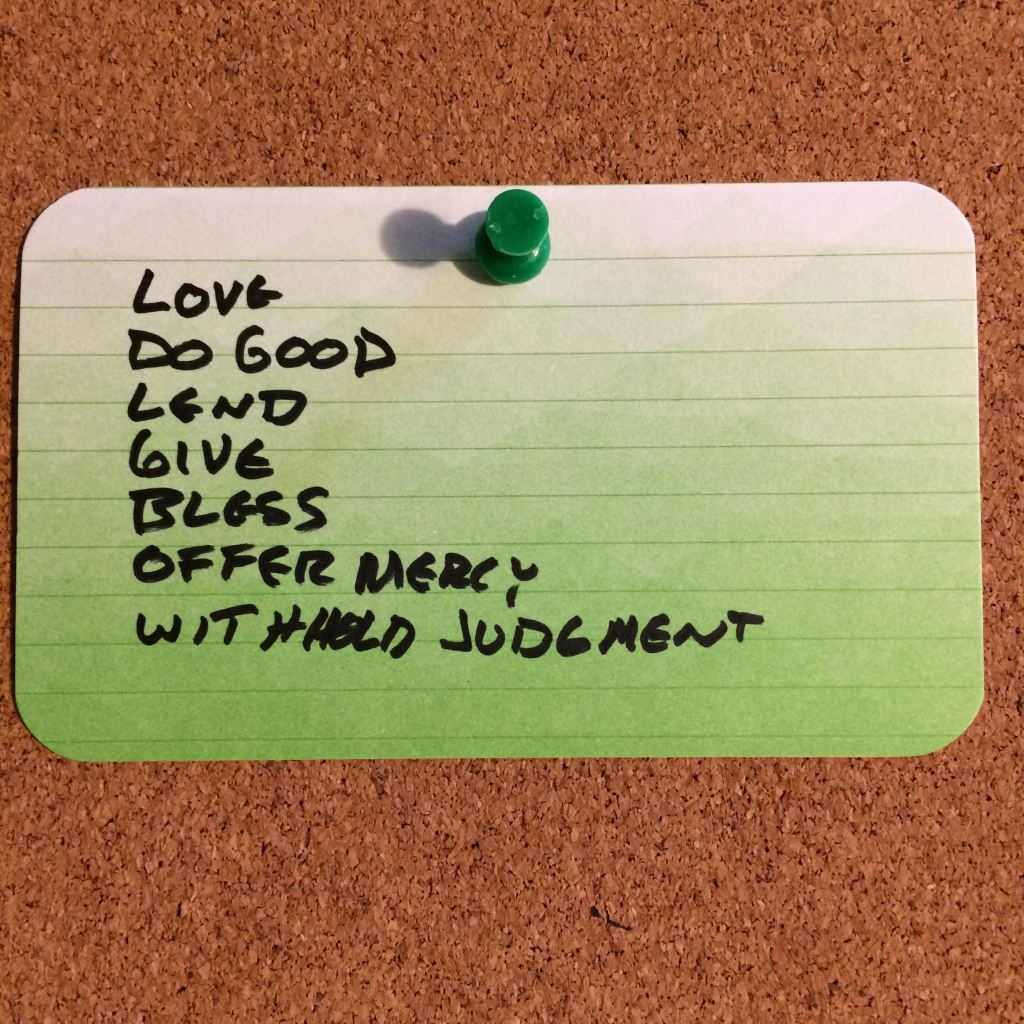 LOVE
DO GOOD
LEND
GIVE
BLESS
OFFER MERCY
WITHHOLD JUDGMENT